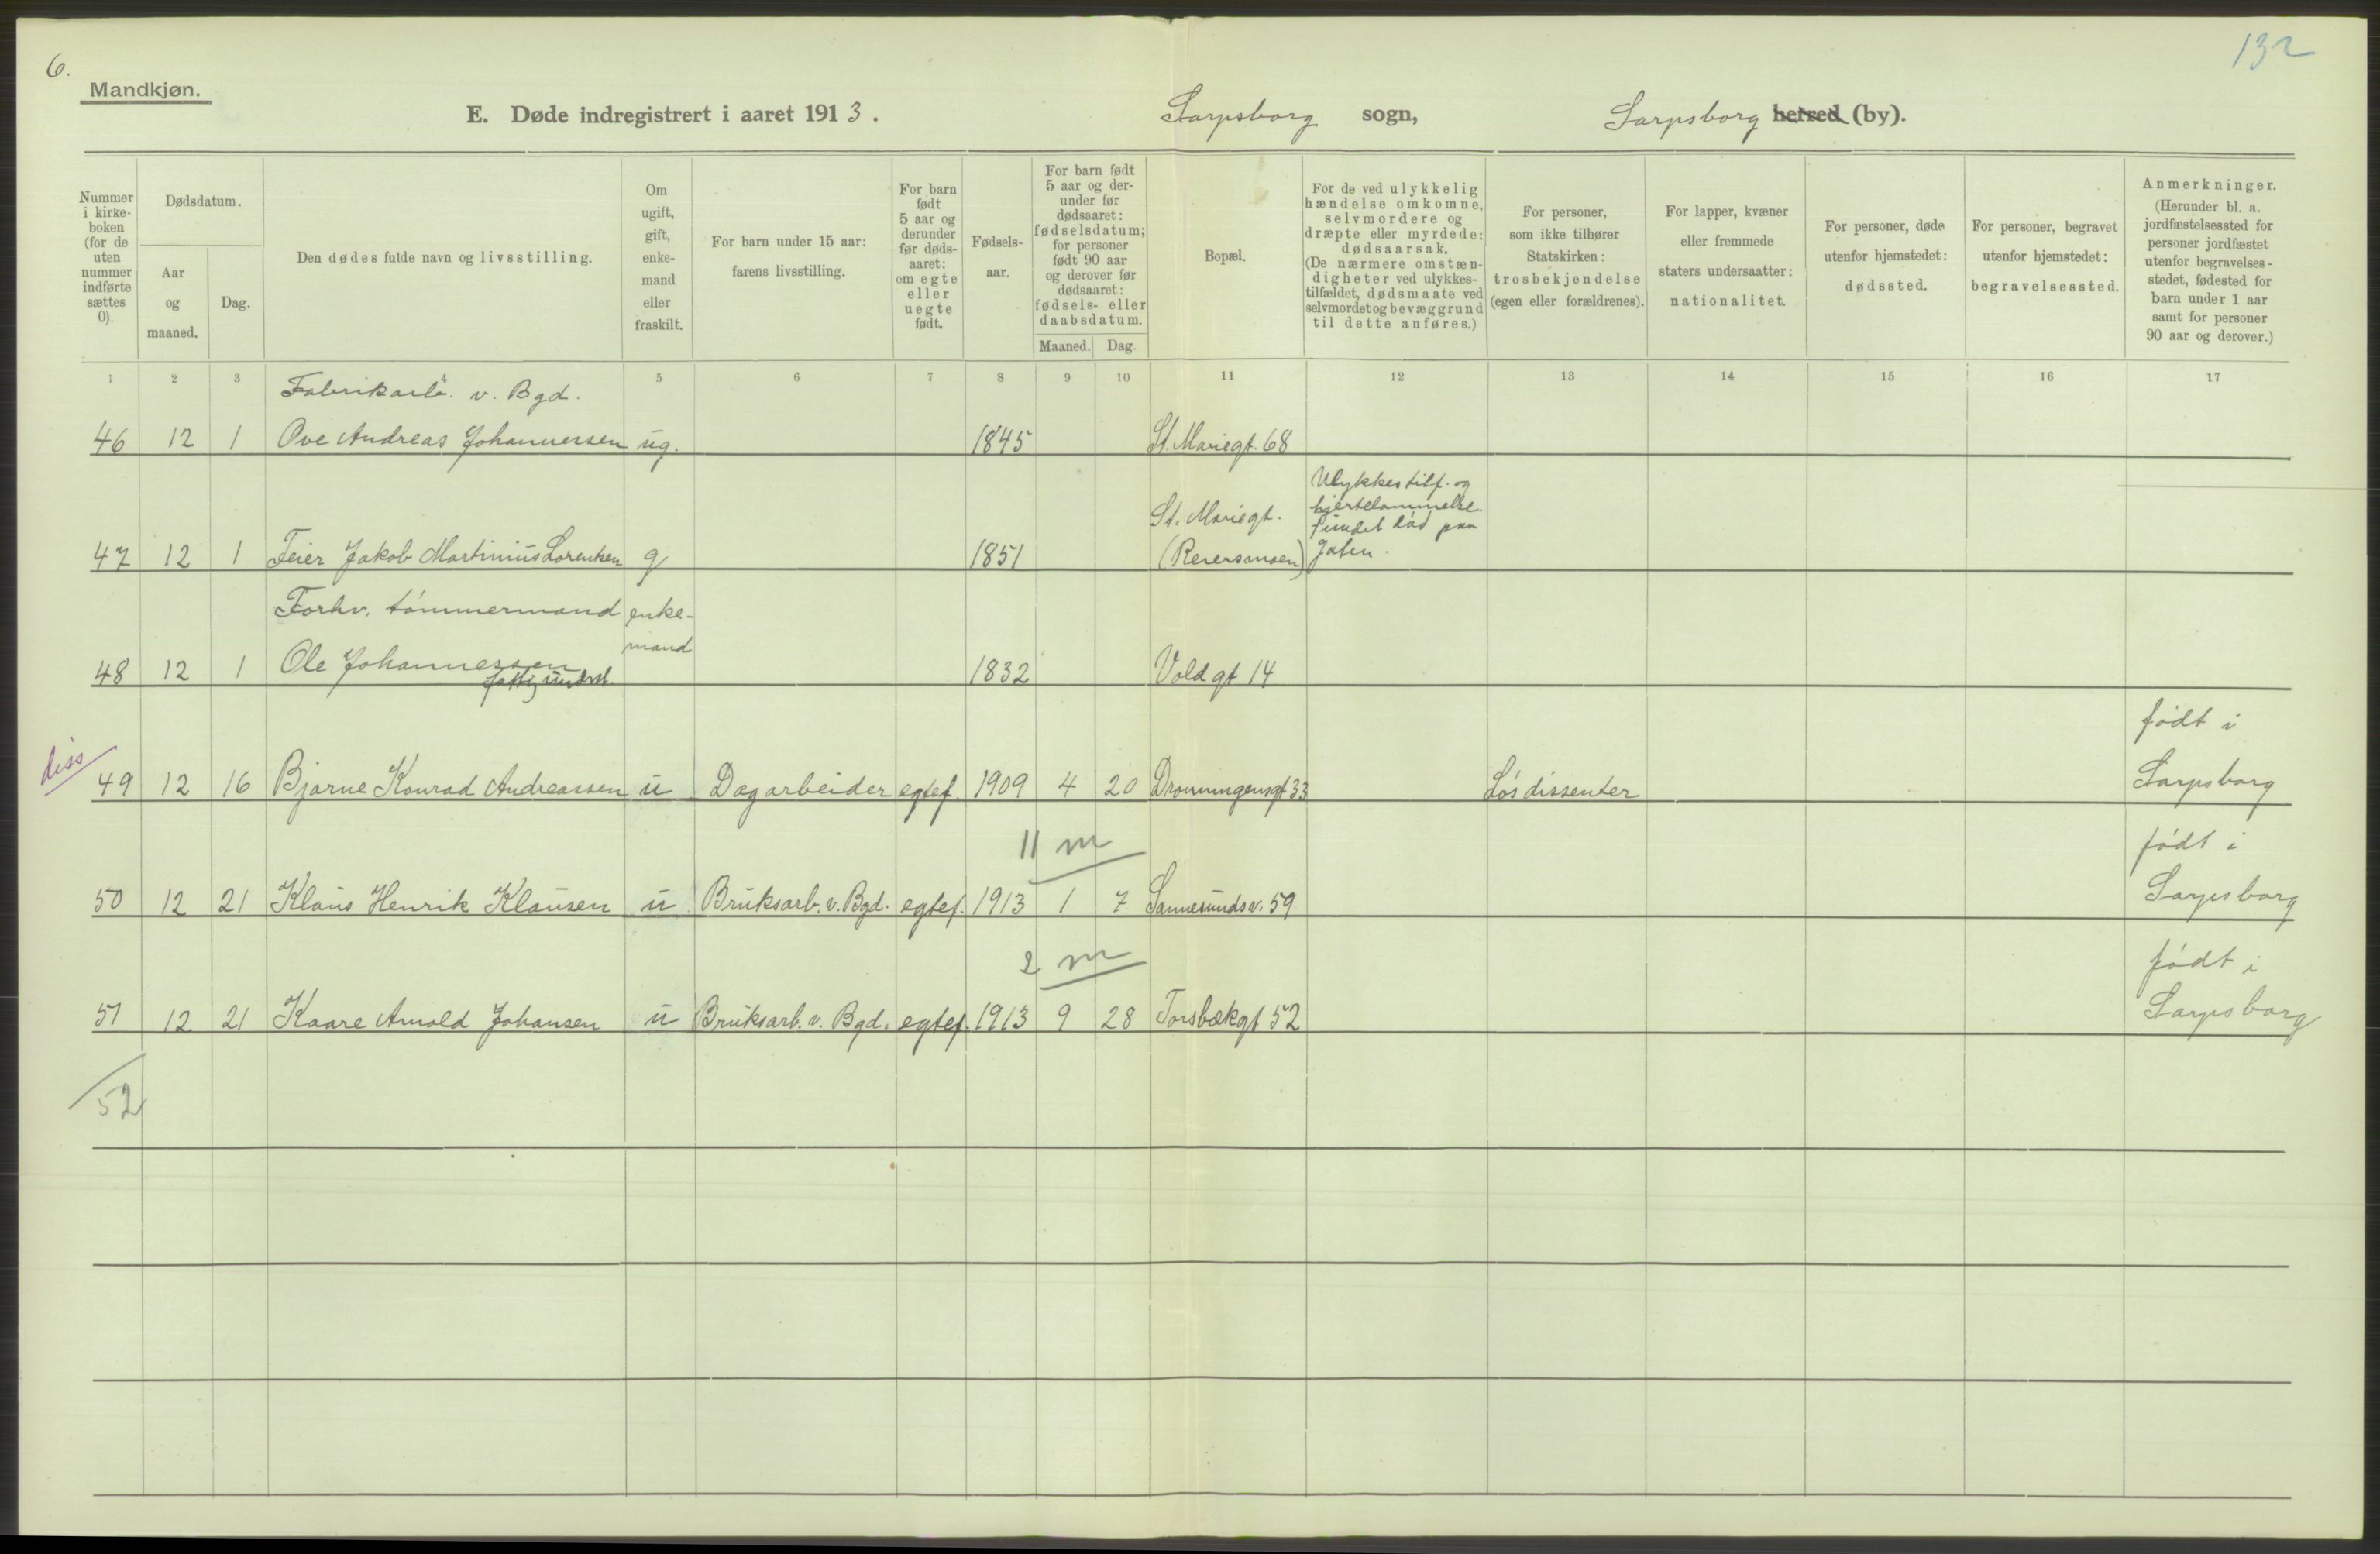 6.
132
Mandkjøn.
E. Døde indregistrert i aaret 1913. Sarpsborg sogn, Sarpsborg herred (by).
Nummer i kirkeboken (for de uten nummer indførte sættes 0).
Dødsdatum.
Aar og maaned.
Dag.
Den dødes fulde navn og livsstilling.
Om ugift, gift, enkemand eller fraskilt.
For barn under 15 aar: farens livsstilling.
For barn født 5 aar og derunder før dødsaaret: om egte eller uegte født.
Fødselsaar.
For barn født 5 aar og derunder før dødsaaret: fødselsdatum; for personer født 90 aar og derover før dødsaaret: fødsels- eller daabsdatum.
Maaned. Dag.
Bopæl.
For de ved ulykkelig hændelse omkomne, selvmordere og dræpte eller myrdede: dødsaarsak. (De nærmere omstændigheter ved ulykkestilfældet, dødsmaate ved selvmordet og bevæggrund til dette anføres.)
For personer, som ikke tilhører Statskirken: trosbekjendelse (egen eller forældrenes).
For lapper, kvæner eller fremmede staters undersaatter: nationalitet.
For personer, døde utenfor hjemstedet: dødssted.
For personer, begravet utenfor hjemstedet: begravelsessted.
Anmerkninger. (Herunder bl. a. jordfæstelsessted for personer jordfæstet utenfor begravelsesstedet, fødested for barn under 1 aar samt for personer 90 aar og derover.)
1 2 3 4 5 6 7 8 9 10 11 12 13 14 15 16 17
Fabrikarb. v. Bgd.
46 12 1 Ove Andreas Johannessen ug. 1845 St. Mariegt. 68
Ulykkestilf. og
St. Mariegt. hjertelammelse.
fundet død paa
47 12 1 Feier Jakob Martinius Lorentzen g 1851 gaten.
Forhv. tømmermand enke-
mand
48 12 1 Ole Johannessen 1832 Voldgt 14
fattigunderst.
diss
født i
49 12 16 Bjarne Konrad Andreassen u Dagarbeider egtef. 1909 4 20 Dronningensgt 33 Løs dissenter Sarpsborg
11 m
født i
50 12 21 Klaus Henrik Klausen u Bruksarb. v. Bgd. egtef. 1913 1 7 Sannesundsv. 59 Sarpsborg
2 m
født i
51 12 21 Kaare Arnold Johansen u Bruksarb. v. Bgd. egtef. 1913 9 28 Torsbækgt 52 Sarpsborg
52